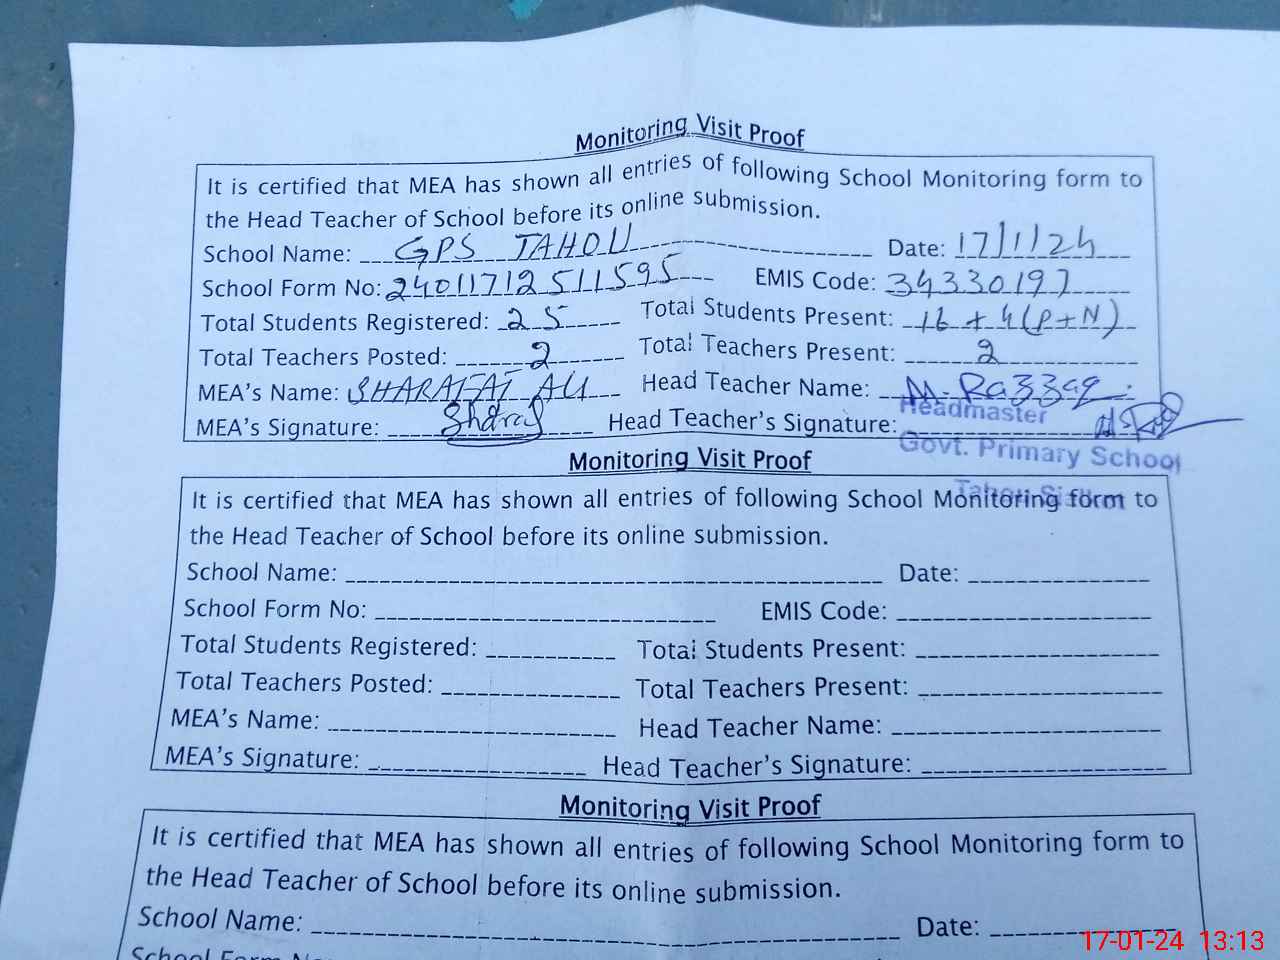 Monitoring Visit Proof
It is certified that MEA has shown all entries of following School Monitoring form to
the Head Teacher of School before its online submission.
School Name: GPS TAHOU Date: 17/1/24
School Form No: 24011712511595 EMIS Code: 34330197
Total Students Registered: 25 Total Students Present: 16 + 4 (P+N)
Total Teachers Posted: 2 Total Teachers Present: 2
MEA's Name: SHARAFAT ALI Head Teacher Name: M. Razzaq
MEA's Signature: Sharaf Head Teacher's Signature:
Headmaster
Govt. Primary School
Monitoring Visit Proof
It is certified that MEA has shown all entries of following School Monitoring form to
the Head Teacher of School before its online submission.
School Name: Date:
School Form No: EMIS Code:
Total Students Registered: Total Students Present:
Total Teachers Posted: Total Teachers Present:
MEA's Name: Head Teacher Name:
MEA's Signature: Head Teacher's Signature:
Monitoring Visit Proof
It is certified that MEA has shown all entries of following School Monitoring form to
the Head Teacher of School before its online submission.
School Name: Date:
School Form
17-01-24 13:13